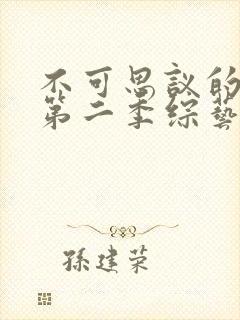 不可思议的
第二季综艺
孙建荣